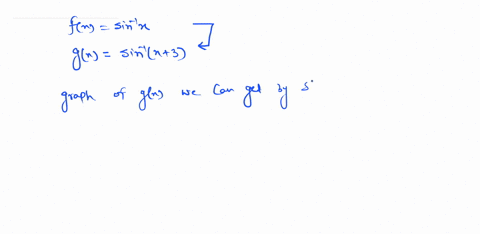 f(x) = sin⁻¹x
g(x) = sin⁻¹(x+3)
graph of g(x) we can get by s